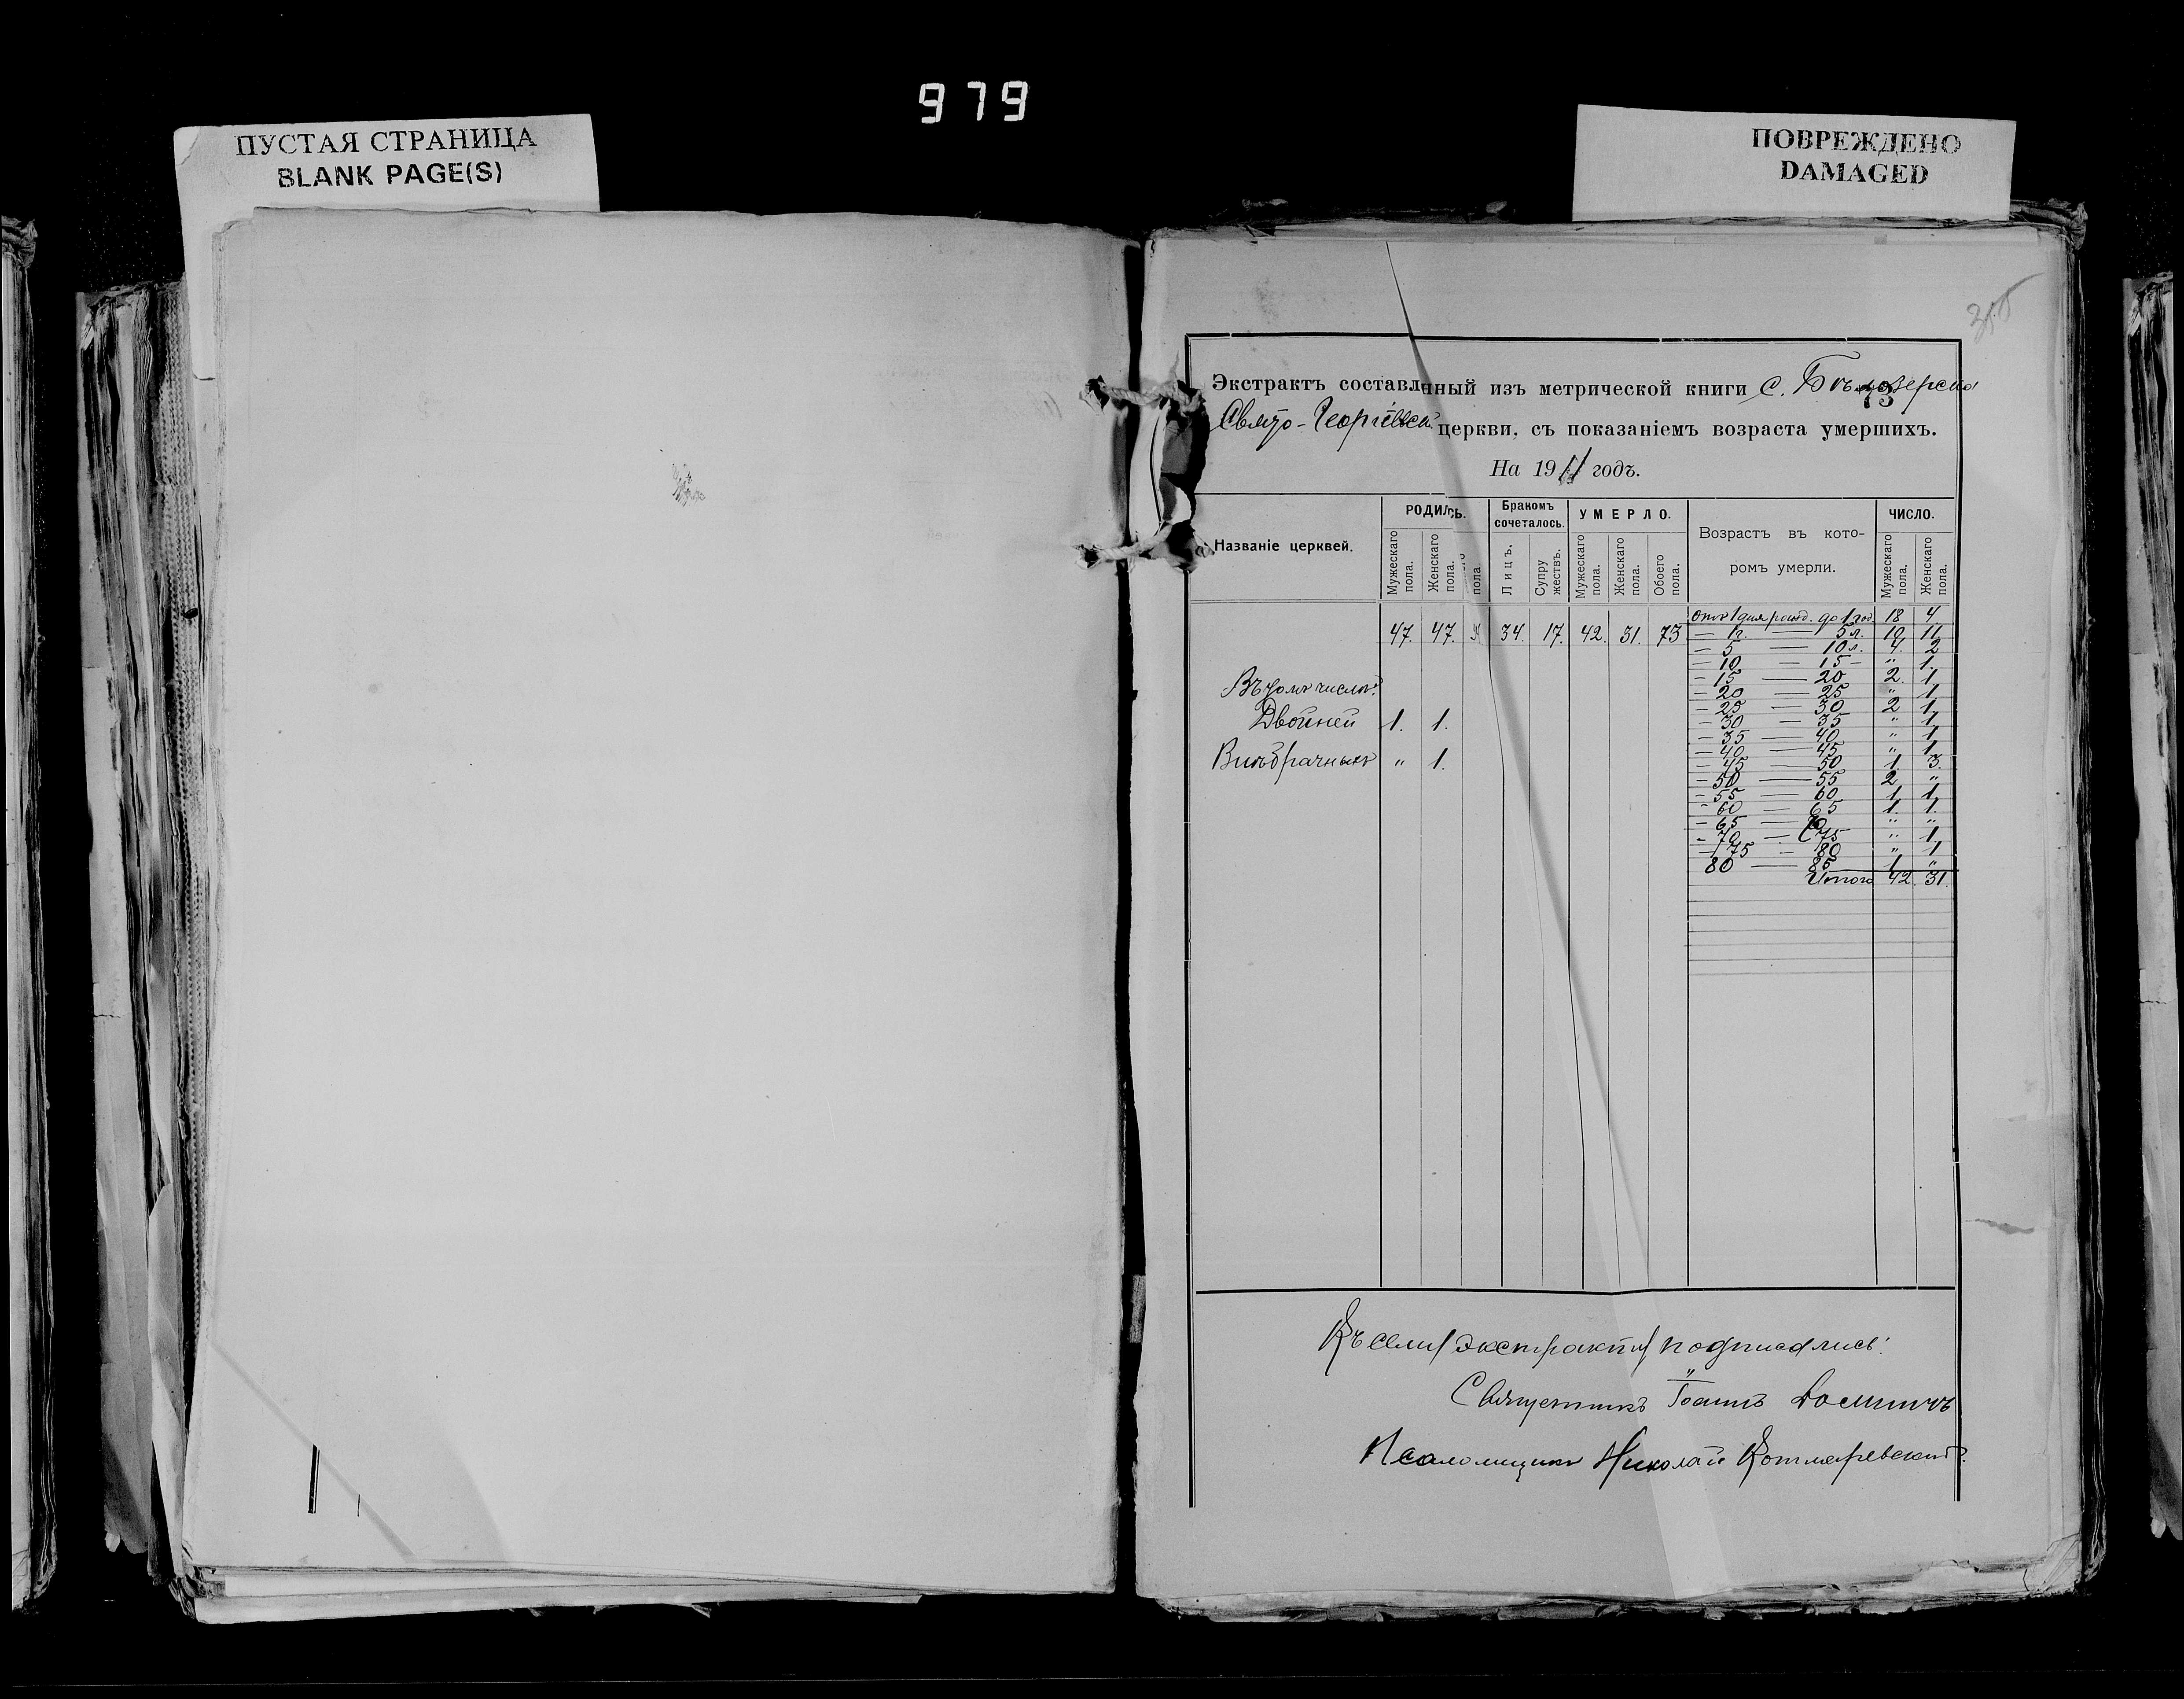 979
ПУСТАЯ СТРАНИЦА
BLANK PAGE(S)
ПОВРЕЖДЕНО
DAMAGED
Экстрактъ составленный изъ метрической книги с. Бѣлозерска
73
Свято-Георгіевской церкви, съ показаніемъ возраста умершихъ.
На 1911 годъ.
Названіе церквей.
РОДИЛСЬ.
Мужескаго пола.
Женскаго пола.
пола
Бракомъ сочеталось.
Лицъ.
Супружествъ.
УМЕРЛО.
Мужескаго пола.
Женскаго пола.
Обоего пола.
Возрастъ въ которомъ умерли.
ЧИСЛО.
Мужескаго пола.
Женскаго пола.
47. 47. 34. 17. 42. 31. 73
Въ томъ числѣ:
Двойней 1. 1.
Внѣбрачныхъ " 1.
Отъ 1 дня рожд. до 1 год. 18 4
— 1 г. — 5 л. 10 11
— 5 — 10 л. 4. 2
— 10 — 15 — " 1.
— 15 — 20 2. 1.
— 20 — 25 " 1.
— 25 — 30 2 1.
— 30 — 35 " 1.
— 35 — 40 " 1.
— 40 — 45 " 1.
— 45 — 50 1. 3.
— 50 — 55 2 "
— 55 — 60 1. 1.
— 60 — 65 1. 1.
— 65 — 70 " "
— 70 — 75 " 1.
— 75 — 80 " 1
80 — 85 1. "
Итого 42. 31.
Къ сему экстракту подписались:
Священникъ Іоаннъ
Псаломщикъ Николай Котляревскій.